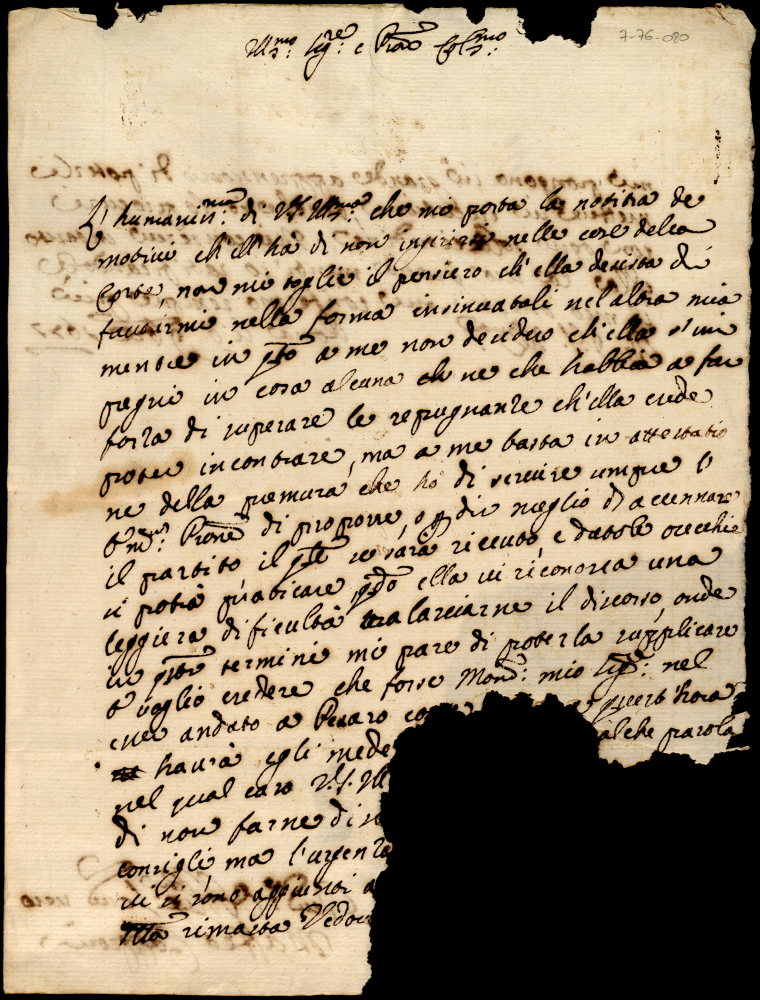 7-76-080
Ill.mo Sig.re e Pron Col.mo
L'humaniss.ma di V.S. Ill.ma che mi porta la notitia de
motivi ch'ell'hà di non ingerirsi nelle cose della
Corte, non mi toglie il pensiero ch'ella desista di
favorirmi nella forma insinuatali nel'altra mia
mentre in q.to a me non desidero ch'ella s'im
pegni in cosa alcuna ch ne che habbia a far
forza di superare le repugnanze ch'ella crede
poter incontrare, ma a me basta in attestatio
ne della premura che hò di servire sempre l'
O m.o Prone di proporre, o p dir meglio di accennare
il partito il q.le se sarà ricevuto e datole orecchie
si potrà praticare, q.do ella vi riconosca una
leggiera dificultà tralasciarne il discorso, onde
in q.sti termini mi pare di poterla supplicare
o voglio credere che forse Mons.r mio Sig.r nel
esser andato a Pesaro quest'hora
havrà egli mede alche parola
nel qual caso V.S. Ill
di non farne di
consigli ma l'urgenza
vi si sono aggiunti a
rimasta Vedov